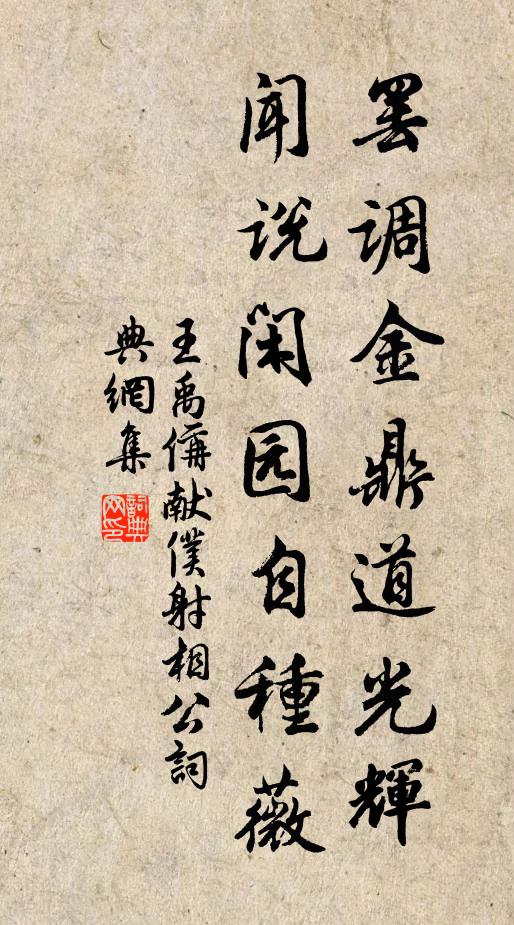 罢调金鼎道光輝
闻说闲园自種薇
王禹偁献僕射相公詞
典網集
詞典網印